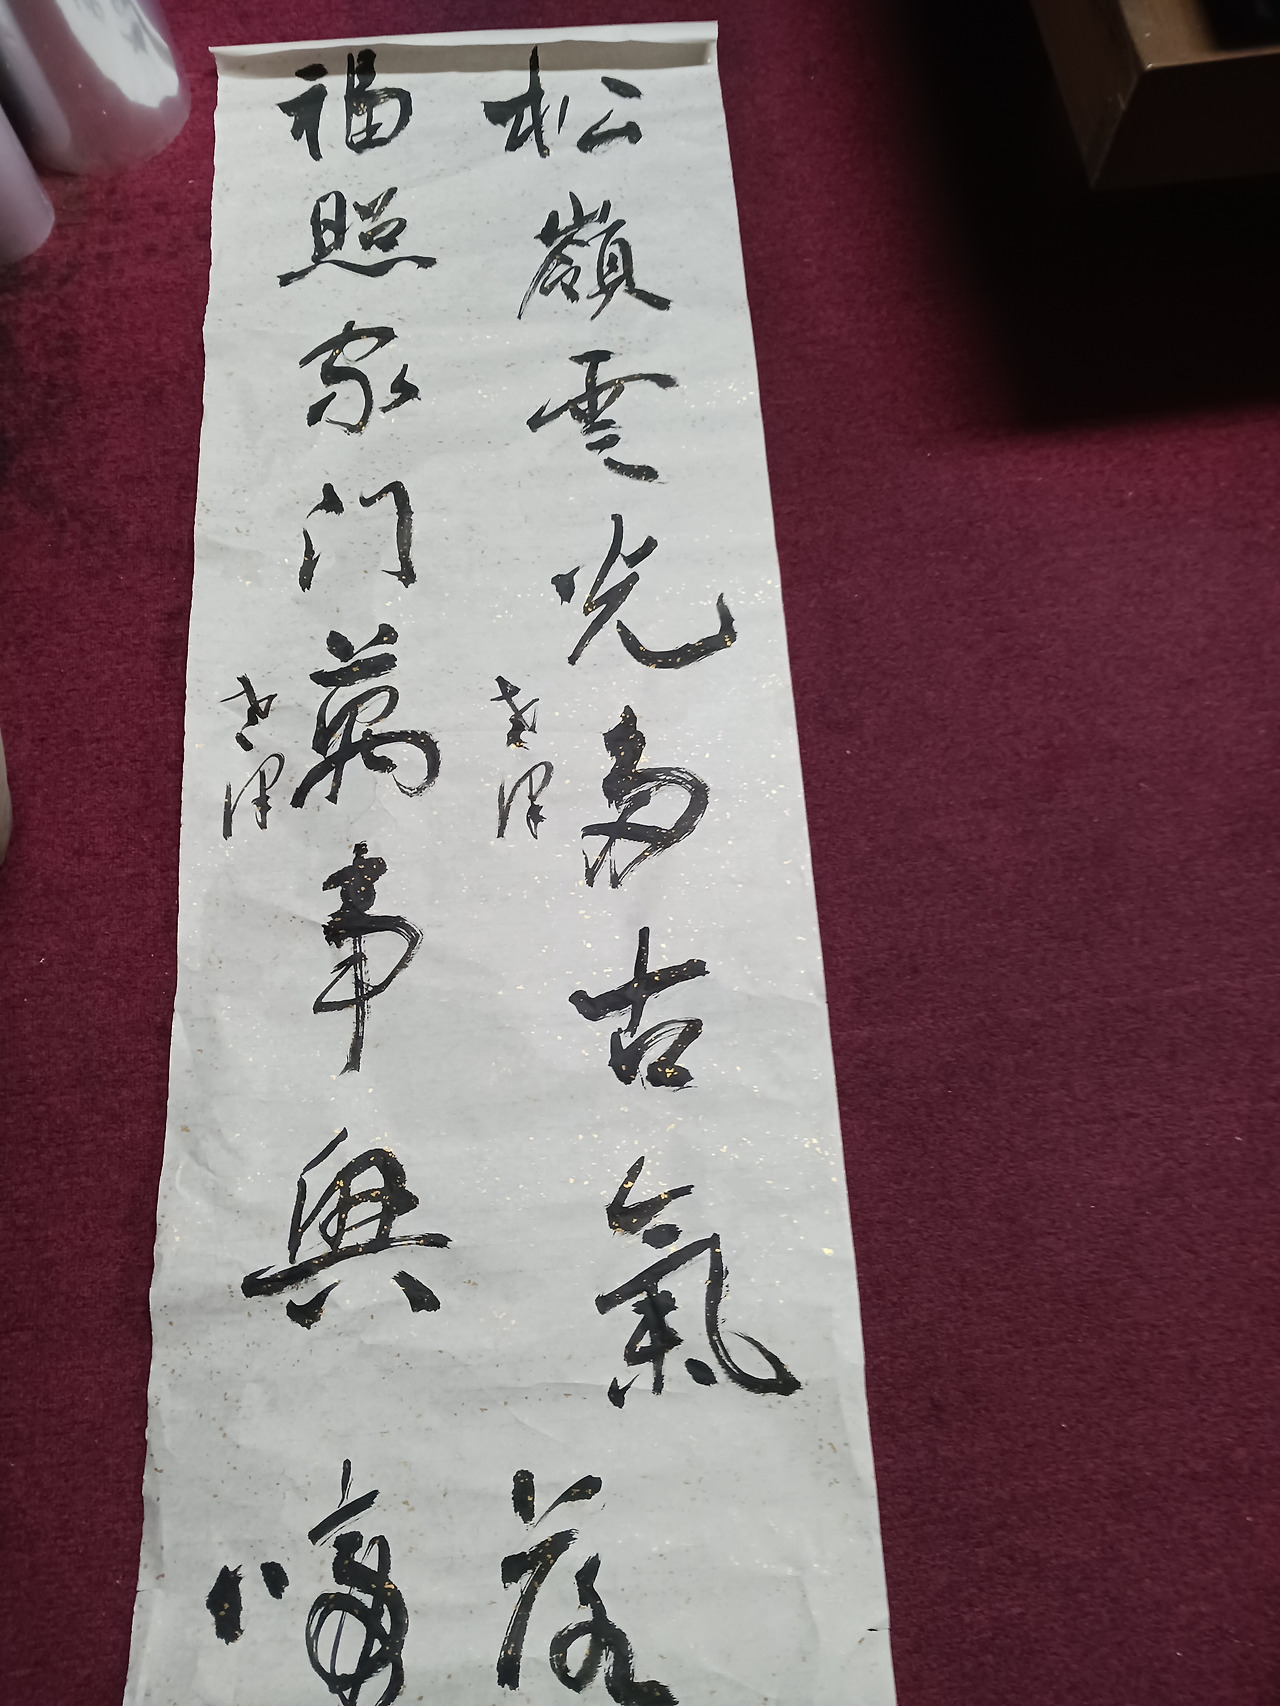 松嶺雲光多古氣
福照家门萬事興